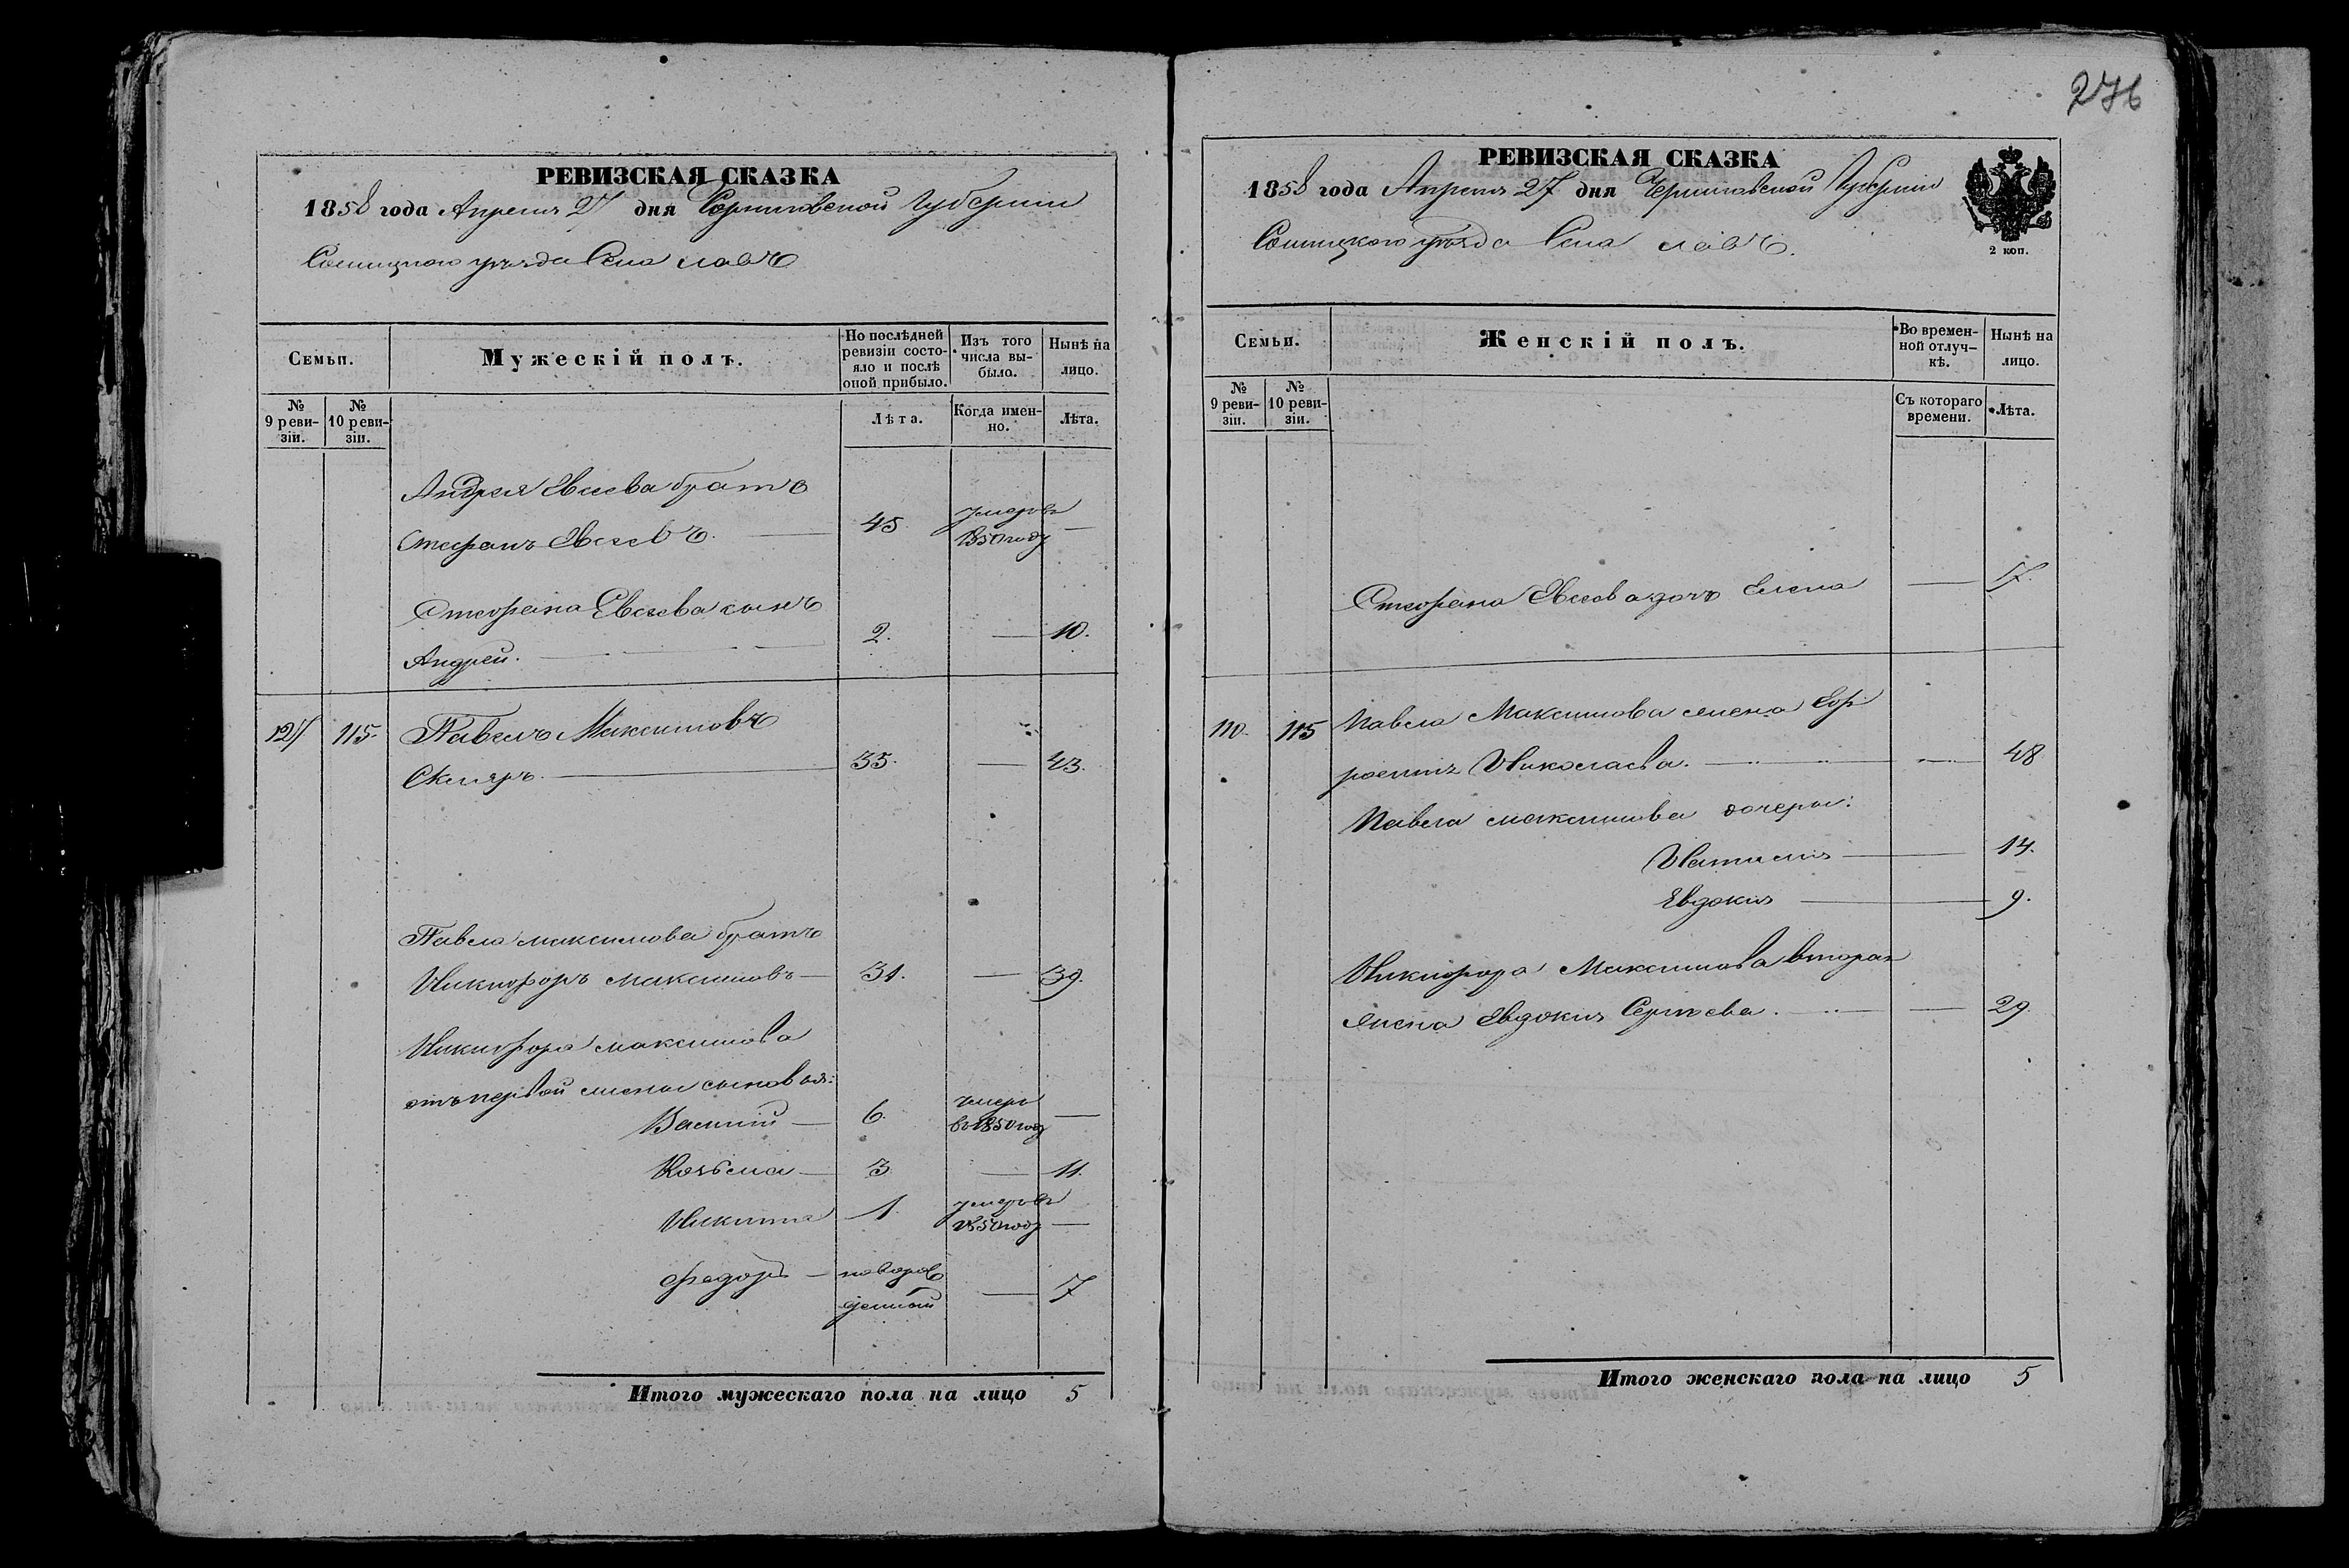 276
РЕВИЗСКАЯ СКАЗКА
1858 года Апреля 27 дня Черниговской Губернии
Сосницкого уѣзда Села
Семьи.
Мужескій полъ.
По послѣдней ревизіи состояло и послѣ оной прибыло.
Изъ того числа выбыло.
Нынѣ на лицо.
№ 9 ревизіи.
№ 10 ревизіи.
Лѣта.
Когда именно.
Лѣта.
Андрея Евсева братъ
Стефанъ Евсевъ. 45 умеръ въ
1850 году
Стефана Евсева сынъ
Андрей. 2. 10.
127 115. Павелъ Максимовъ
Скляръ. 35. 43.
Павла Максимова братъ
Никифоръ Максимовъ 31. 39.
Никифора Максимова
отъ первой жены сыновья:
Василий 6. умеръ
въ 1850 год
Козьма 3 11.
Никита 1. умеръ въ
1850 году
Федоръ новорож
денный 7
Итого мужескаго пола на лицо 5
РЕВИЗСКАЯ СКАЗКА
1858 года Апреля 27 дня Черниговской Губернии
Сосницкого уѣзда Села
2 коп.
Семьи.
Женскій полъ.
Во временной отлучкѣ.
Нынѣ на лицо.
№ 9 ревизіи.
№ 10 ревизіи.
Съ котораго времени.
Лѣта.
Стефана Евсева дочь Елена 17.
110. 115 Павла Максимова жена Еф
росиния Николаева. 48
Павла Максимова дочери:
Наталия 14.
Евдокия 9.
Никифора Максимова вторая
жена Евдокия Сергеева. 29
Итого женскаго пола на лицо 5